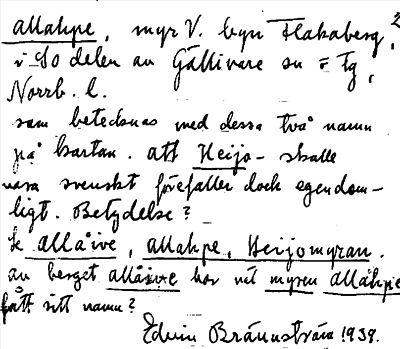 allahpe, myr V. byn Flakaberg, 2
i So delen av Gällivare sn = tg,
Norrb. l.
som betecknas med dessa två namn
på kartan. att Heijo- skulle
vara svenskt förefaller dock egendom-
ligt. Betydelse?
allåive, allahpe, Heijomyran.
av berget allåive har väl myren allahpe
fått sitt namn?
Edvin Brännström 1939.